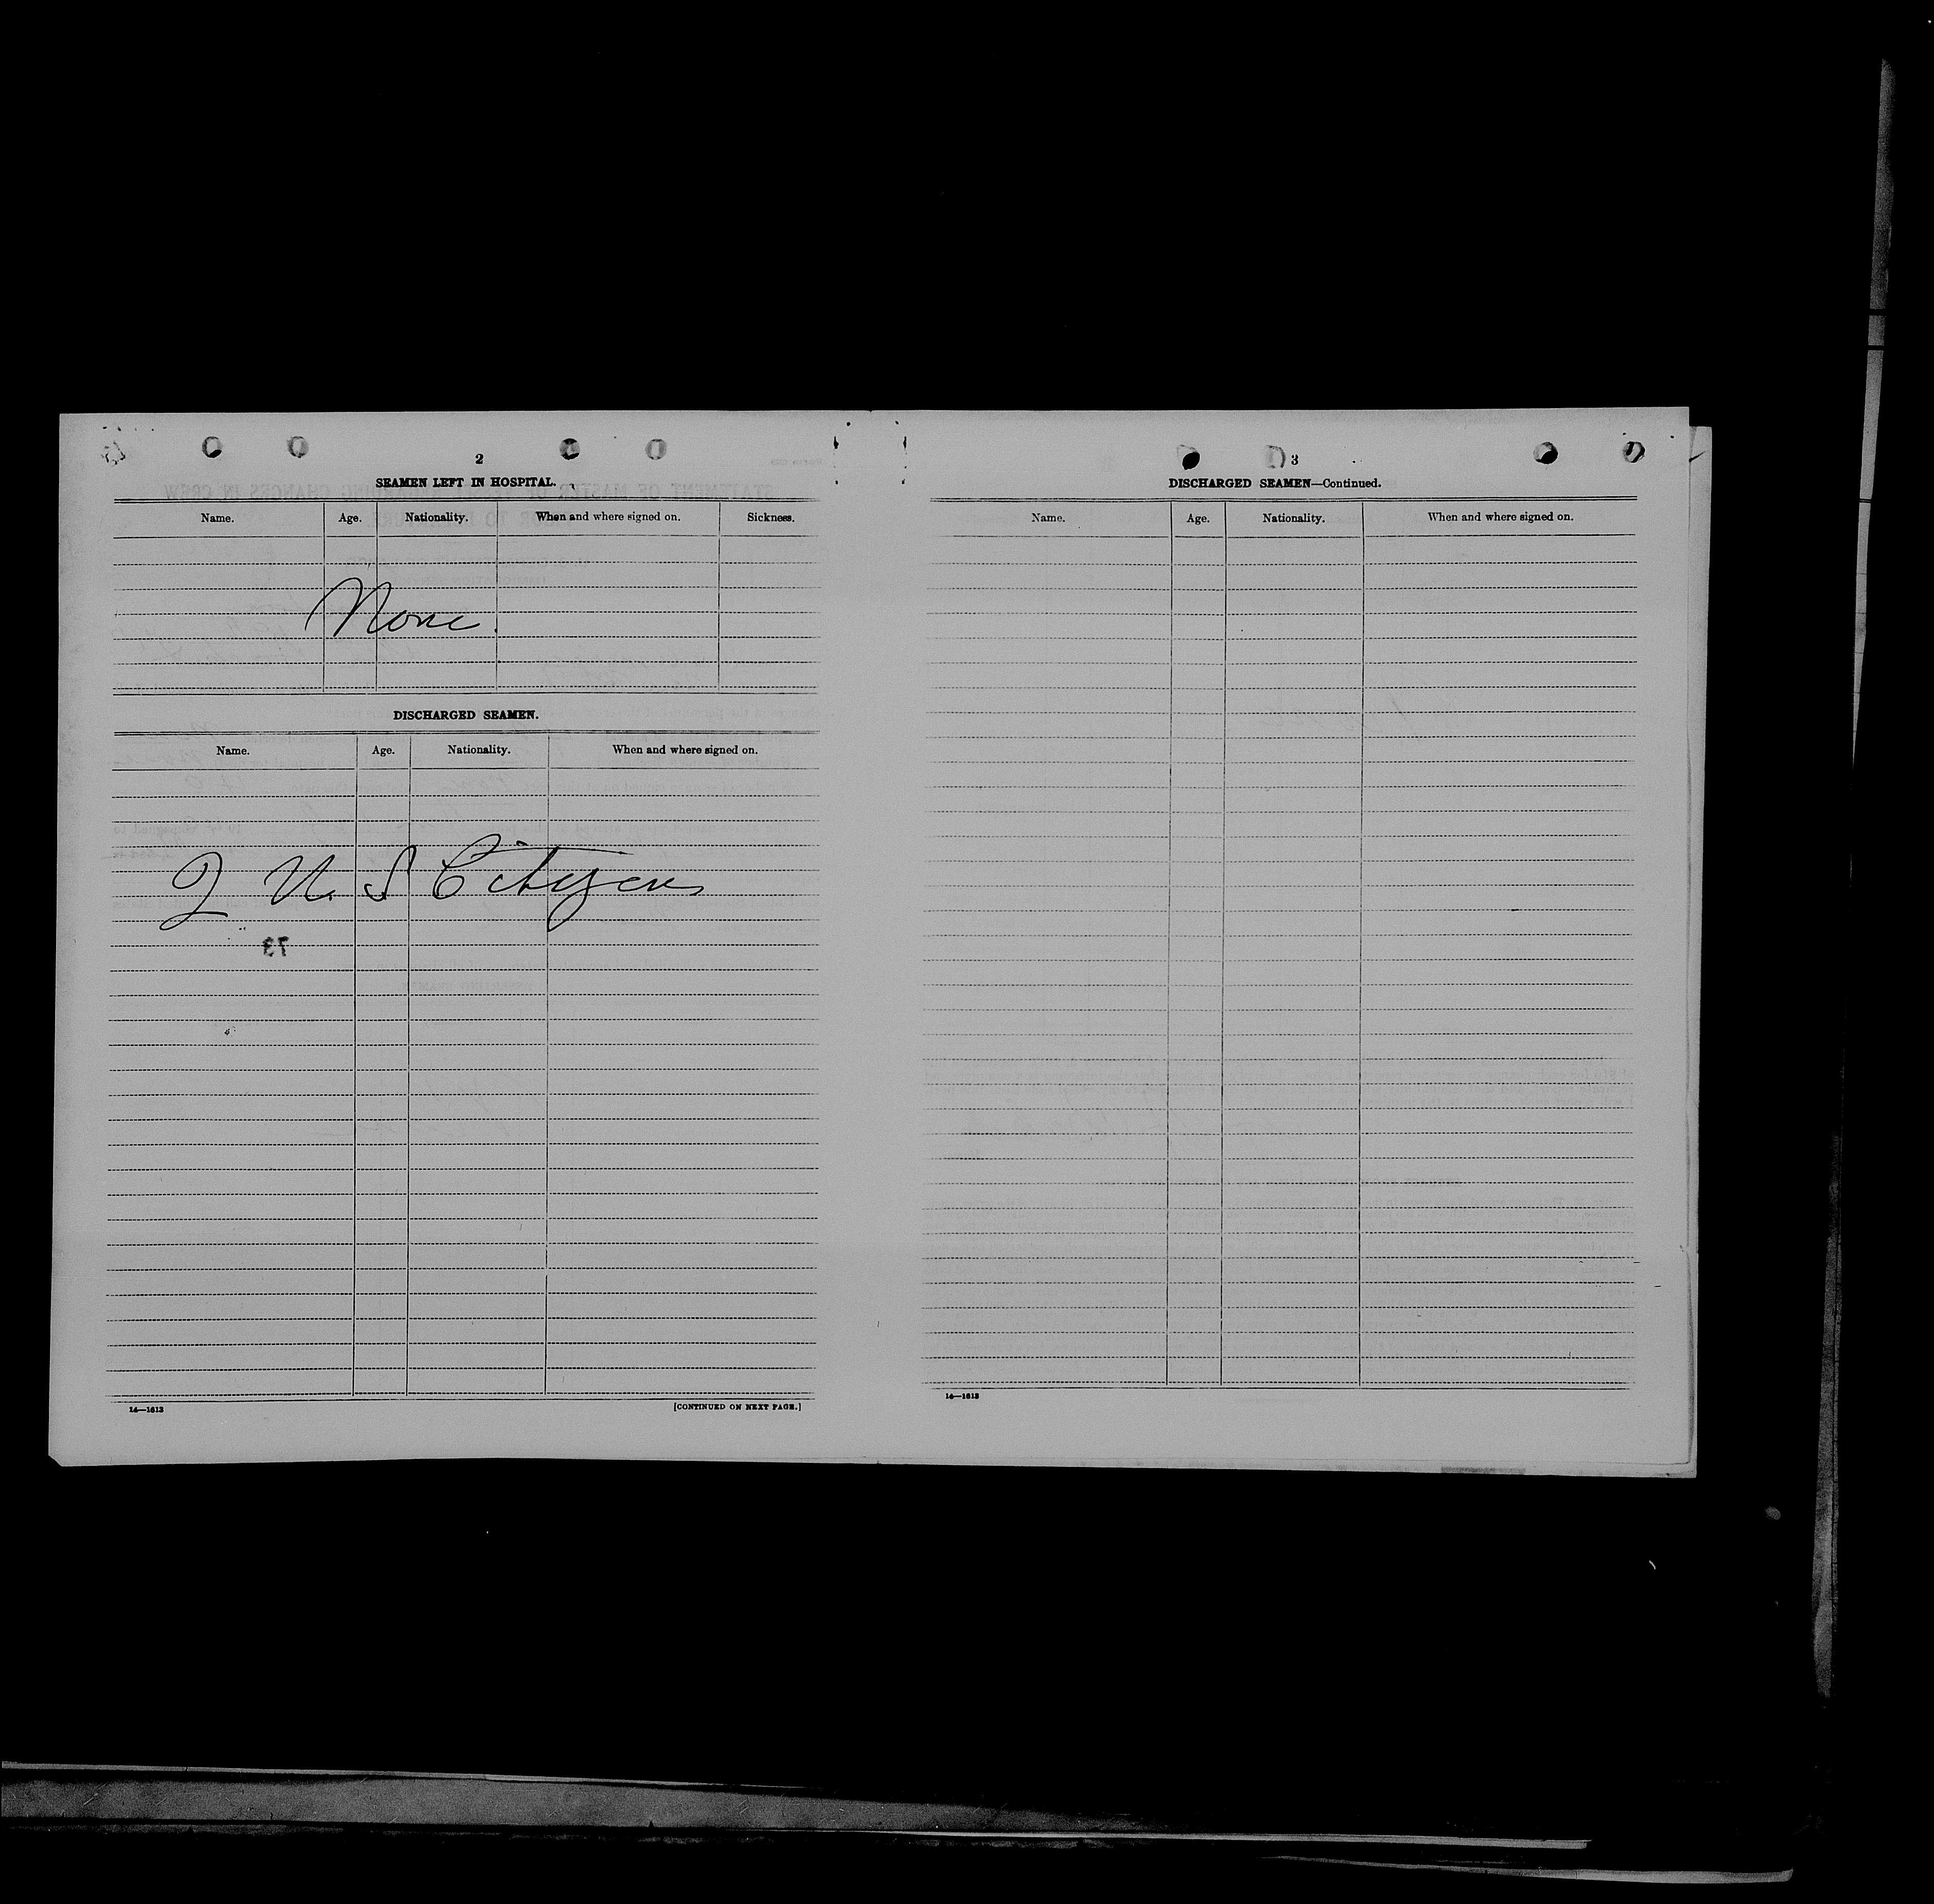 2
SEAMEN LEFT IN HOSPITAL.
Name. Age. Nationality. When and where signed on. Sickness.
None.
DISCHARGED SEAMEN.
Name. Age. Nationality. When and where signed on.
2 U. S Citizens
73
14—1613 [CONTINUED ON NEXT PAGE.]
3
DISCHARGED SEAMEN—Continued.
Name. Age. Nationality. When and where signed on.
14—1613